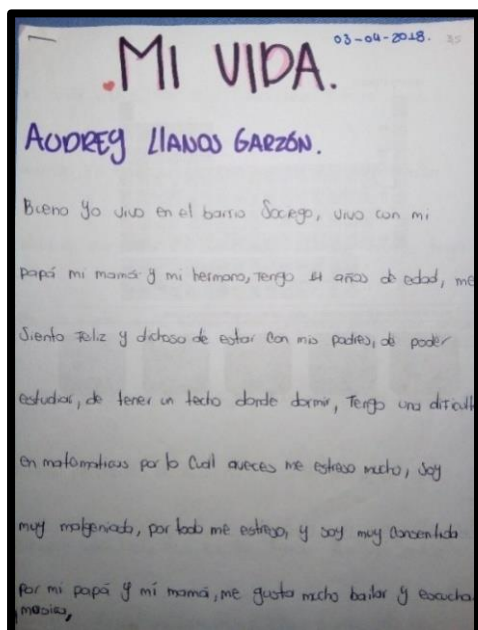 03-04-2018. 35
MI VIDA.
AUDREY LLANOS GARZÓN.
Bueno Yo vivo en el barrio Sociego, vivo con mi
papá mi mamá y mi hermano, tengo años de edad, me
Siento Feliz y dichosa de estar con mis padres, de poder
estudiar, de tener un techo donde dormir, Tengo una dificult
en matematicas por lo Cual aveces me estreso mucho, Soy
muy malgeniada, por todo me estreso, y soy muy consentida
por mi papá y mi mamá, me gusta mucho bailar y escucha
musica,